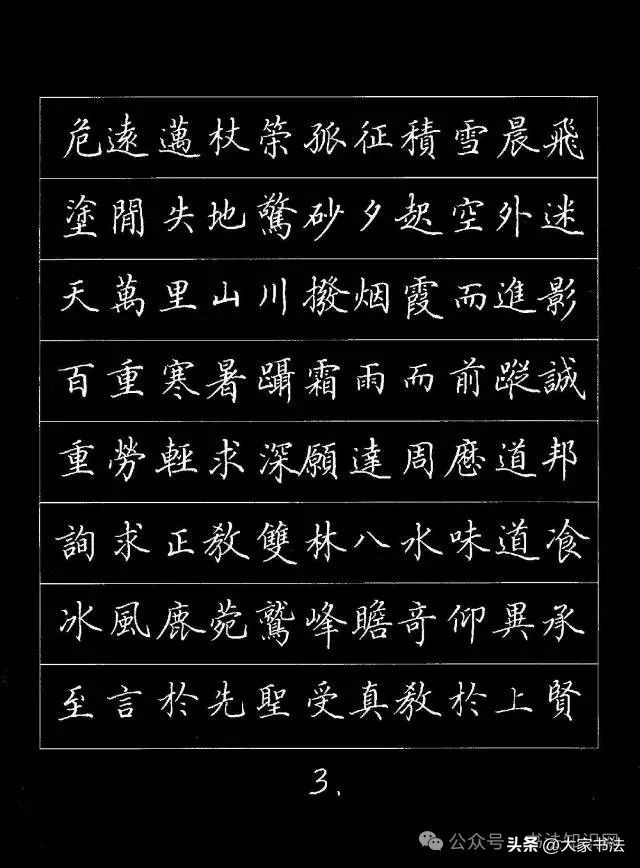 危遠邁杖策孤征積雪晨飛
塗閒失地驚砂夕起空外迷
天萬里山川撥烟霞而進影
百重寒暑躡霜雨而前蹤誠
重勞輕求深願達周歷道邦
詢求正教雙林八水味道飡
冰風鹿菀鷲峰瞻奇仰異承
至言於先聖受真教於上賢
3.
公众号·书法知识网
头条@大家书法